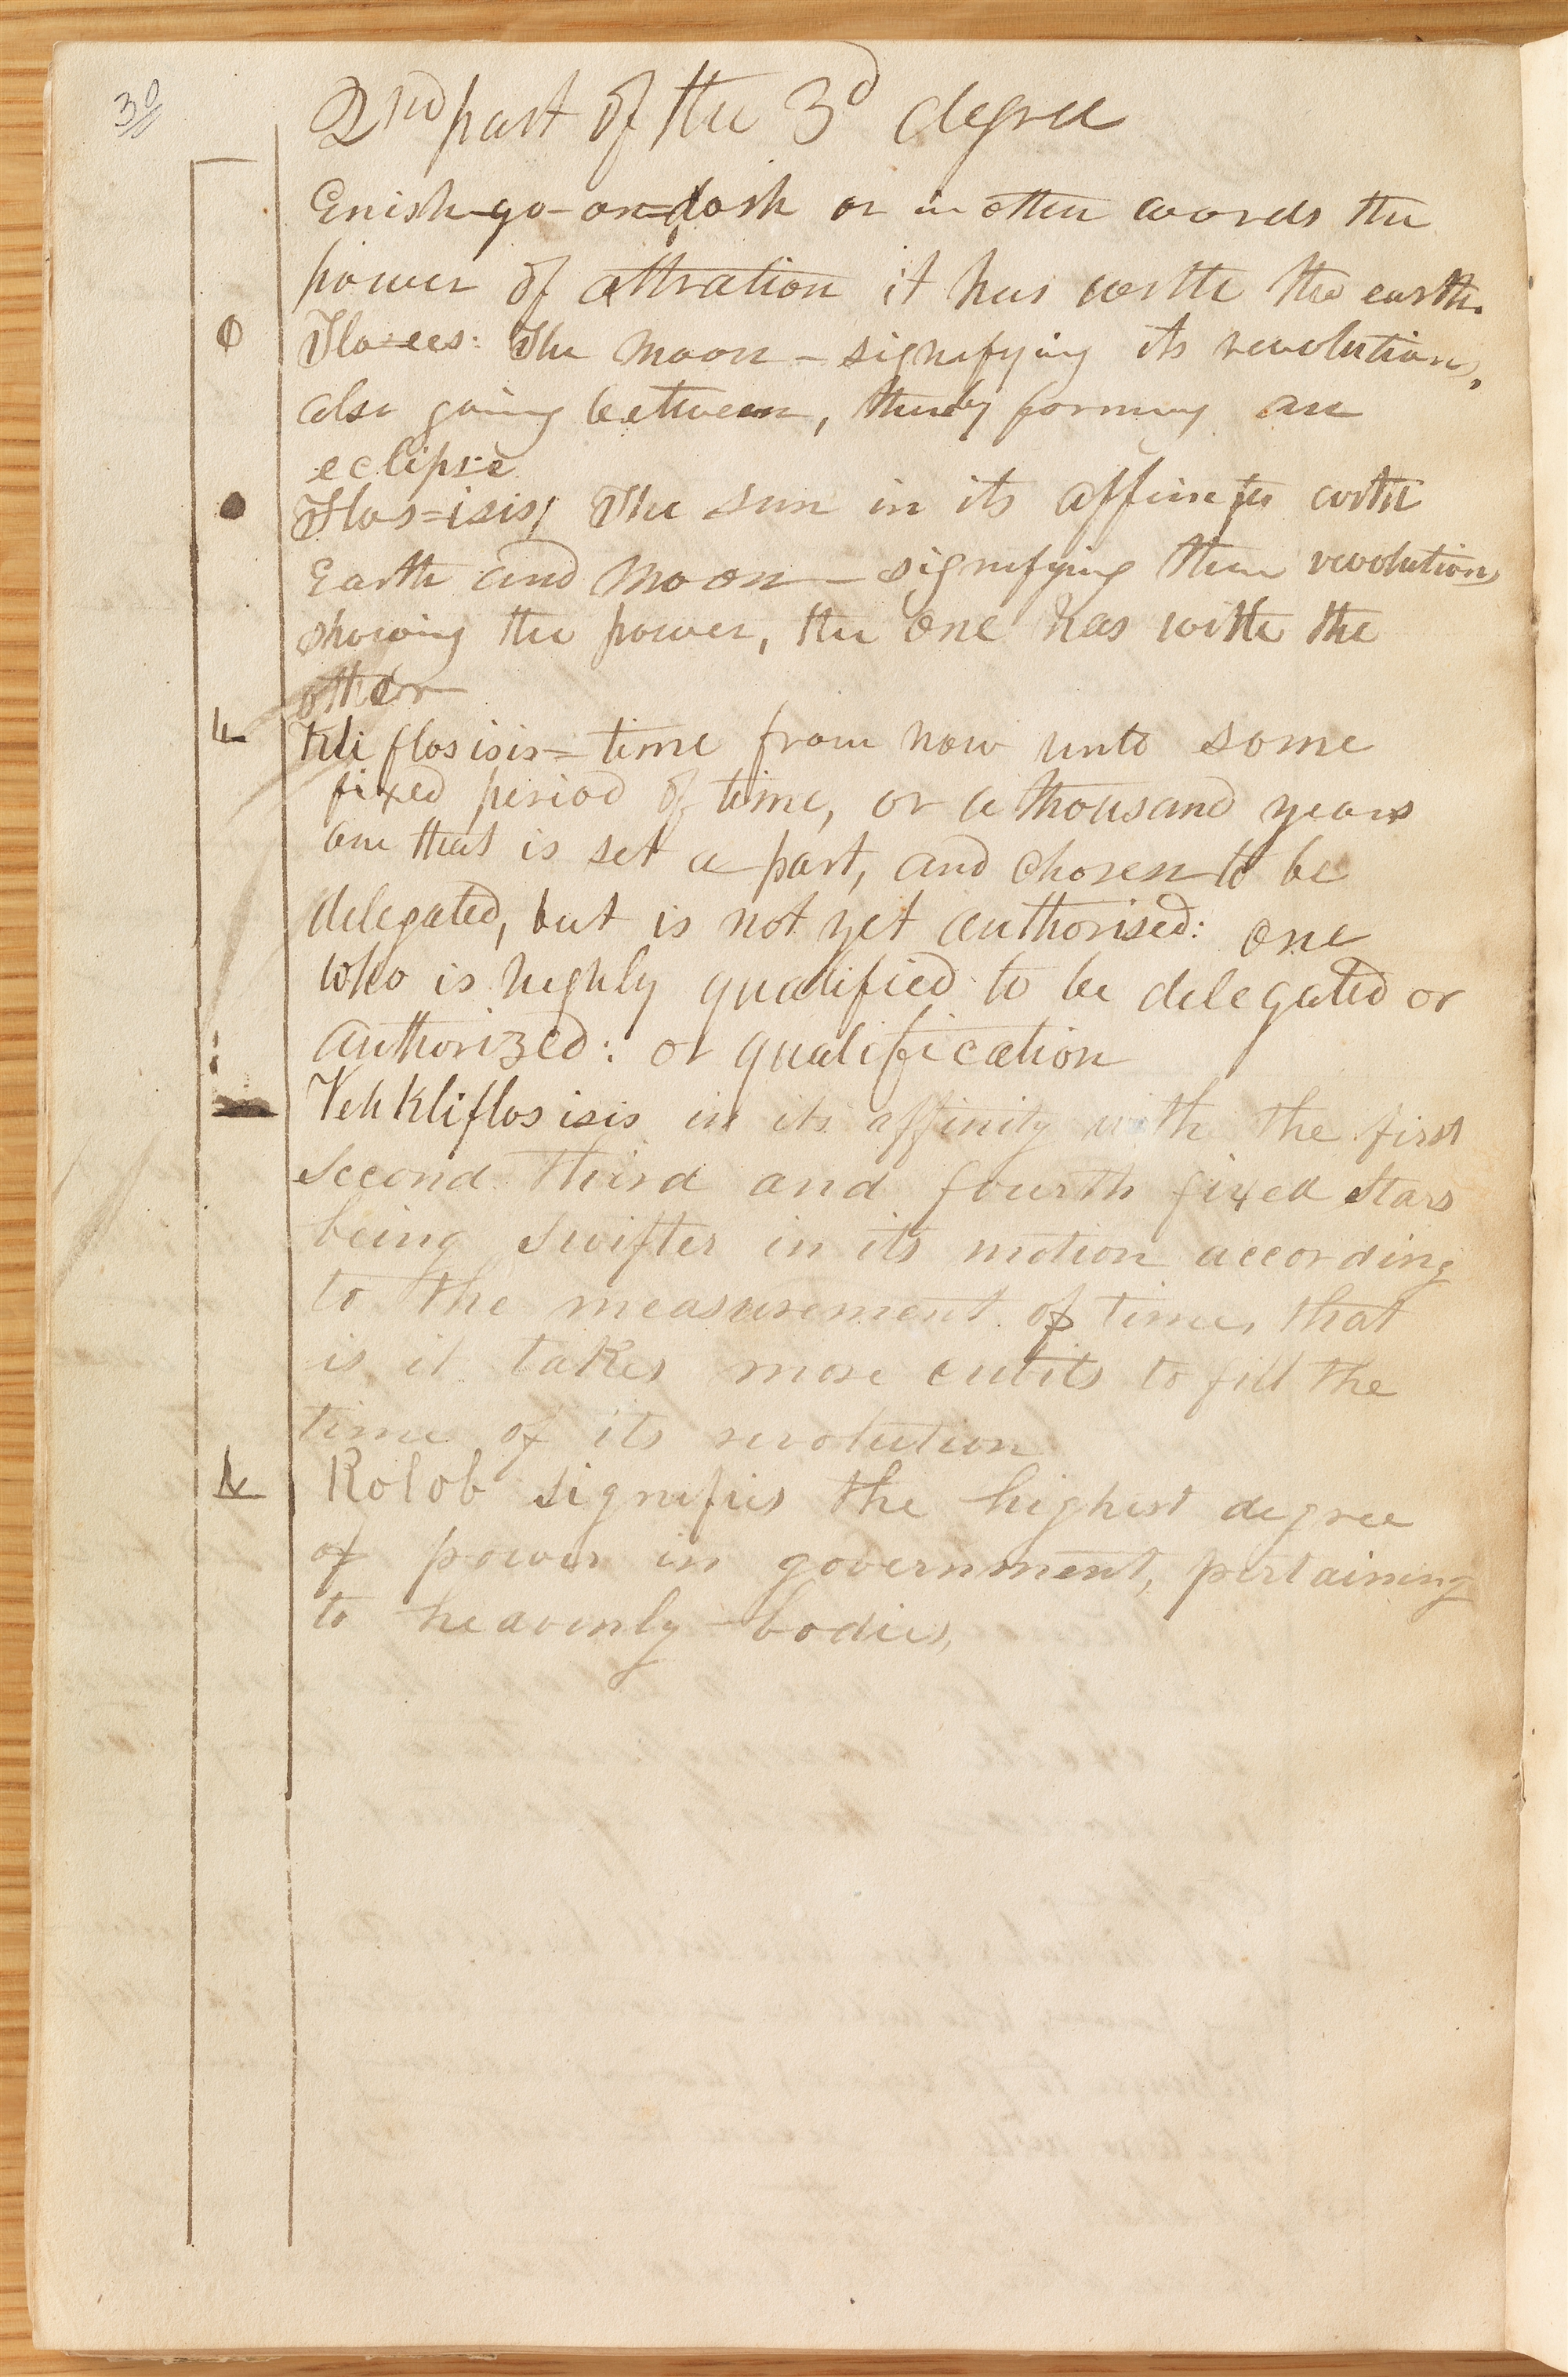 30
2nd part of the 3d degree
Enish-go-on=dosh or in other words the
power of attration it has withe the earth.
Flo=ees: The moon – signifying its revolution,
also going between, thereby forming an
eclipse
Flos=isis; The sun in its affinity with
Earth and Moon – signifying their revolutions
showing the power, the one has withe the
other
Kli flosisis= time from now unto some
fixed period of time, or a thousand years
one that is set a part, and chosen to be
delegated, but is not yet authorised: one
who is highly qualified to be delegated or
authorized: or qualification
Veh Kliflosisis in its affinity with the first
second third and fourth fixed stars
being swifter in its motion according
to the measurement of time, that
is it takes more cubits to fill the
time of its revolution
Kolob signifies the highest degree
of power in government, pertaining
to heavenly bodies,